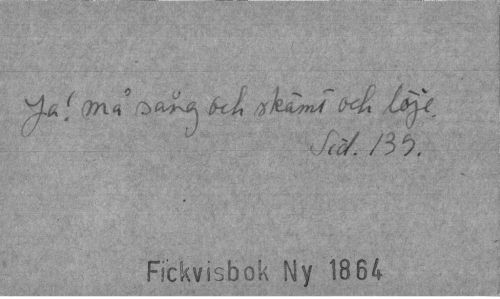 Ja! må sång och skämt och löje.
Sid. 139.
Fickvisbok Ny 1864